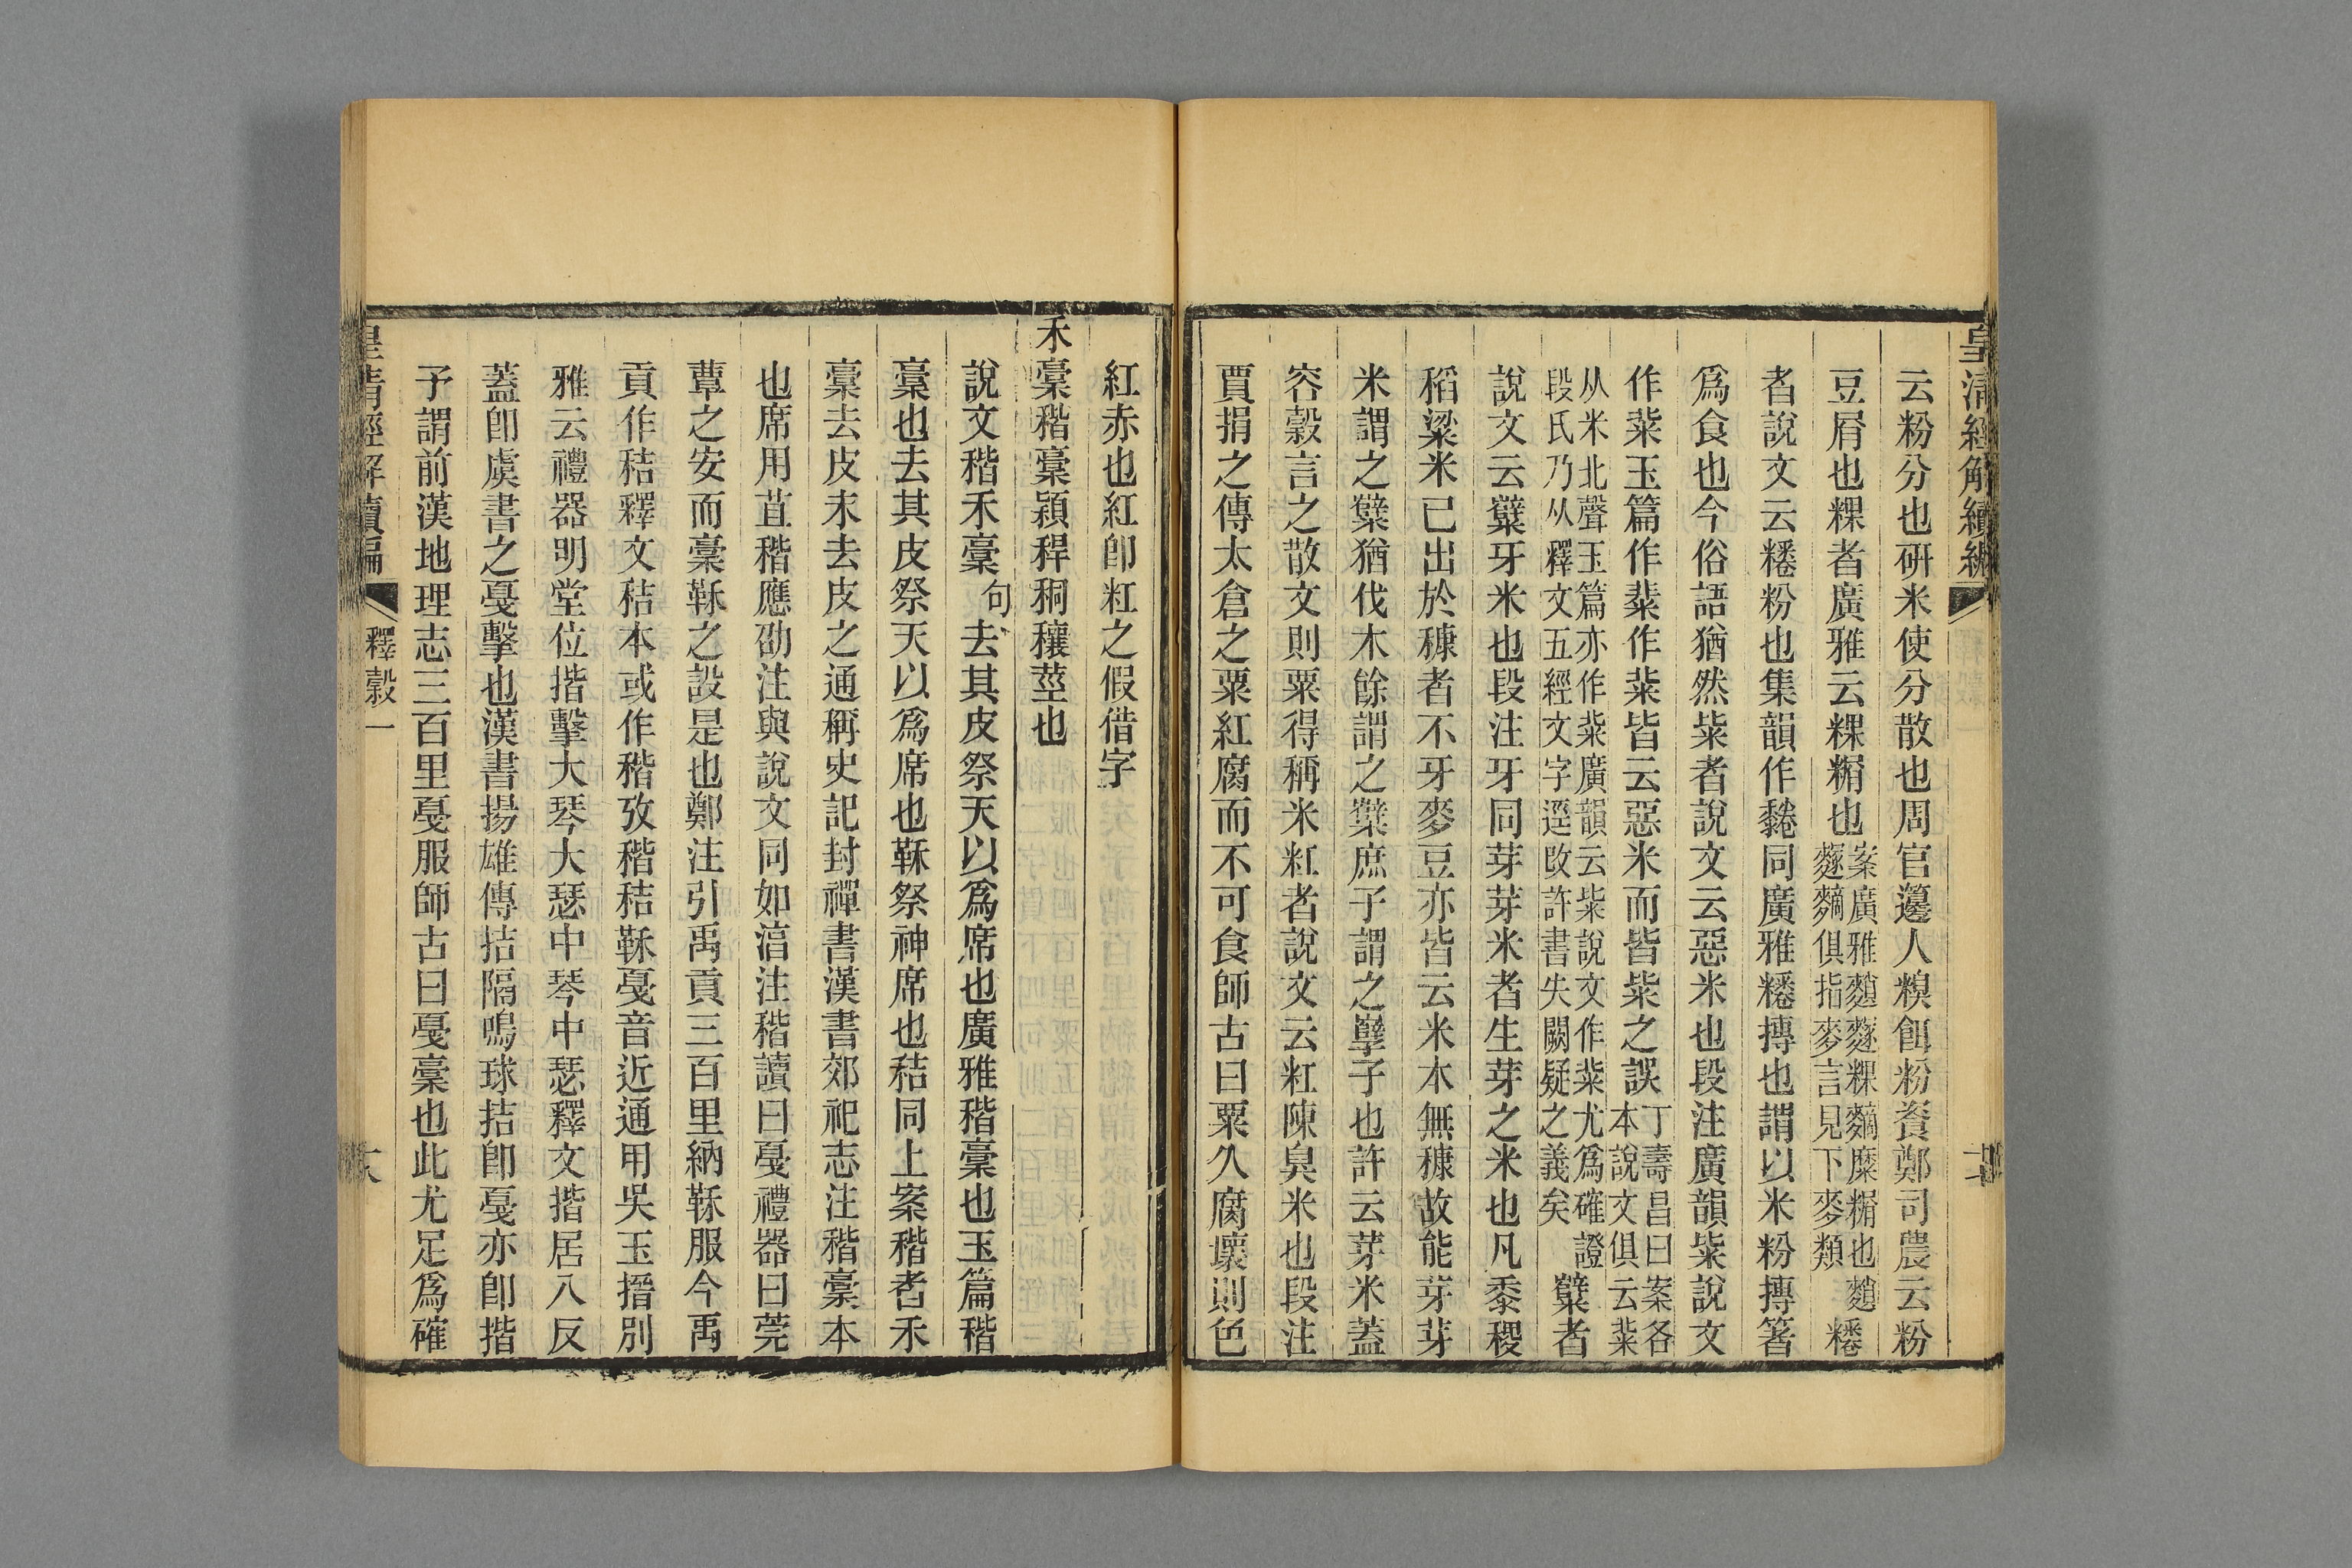 皇清經解續編
云粉分也研米使分散也周官籩人糗餌粉餈鄭司農云粉
豆屑也粿者廣雅云粿糏也案廣雅䴷䴯粿䴴糜糏也䴷
䴯䴴俱指麥言見下麥類 䊎
者說文云䊎粉也集韻作䵩同廣雅䊎摶也謂以米粉摶箸
爲食也今俗語猶然粊者說文云惡米也段注廣韻粊說文
作䉬玉篇作䉬作粊皆云惡米而皆粊之誤丁壽昌曰案各
本說文俱云䉬
从米北聲玉篇亦作䉬廣韻云粊說文作䉬尤爲確證
段氏乃从釋文五經文字逕改許書失闕疑之義矣 糱者
說文云糱牙米也段注牙同芽芽米者生芽之米也凡黍稷
稻粱米已出於穅者不牙麥豆亦皆云米本無穅故能芽芽
米謂之糱猶伐木餘謂之櫱庶子謂之孽子也許云芽米蓋
容穀言之散文則粟得稱米粠者說文云粠陳臭米也段注
賈捐之傳太倉之粟紅腐而不可食師古曰粟久腐壞則色
紅赤也紅卽粠之假借字
禾稾稭稾穎稈秱穰莖也
說文稭禾稾句去其皮祭天以爲席也廣雅稭稾也玉篇稭
稾也去其皮祭天以爲席也鞂祭神席也秸同上案稭者禾
稾去皮未去皮之通稱史記封禪書漢書郊祀志注稭稾本
也席用苴稭應劭注與說文同如淳注稭讀曰戛禮器曰莞
蕈之安而稾鞂之設是也鄭注引禹貢三百里納鞂服今禹
貢作秸釋文秸本或作稭攷稭秸鞂戛音近通用吳玉搢別
雅云禮器明堂位揩擊大琴大瑟中琴中瑟釋文揩居八反
蓋卽虞書之戛擊也漢書揚雄傳拮隔鳴球拮卽戛亦卽揩
予謂前漢地理志三百里戛服師古曰戛稾也此尤足爲確
皇清經解續編
釋穀一